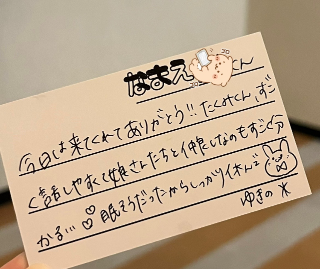 なまえ くん
今日は来てくれてありがとう!! たくみくん、すご
く話しやすくて娘さんたちと仲良しなのもすごく分
かる!! ♡♡ 眠そうだったからしっかり休んで
ゆきの